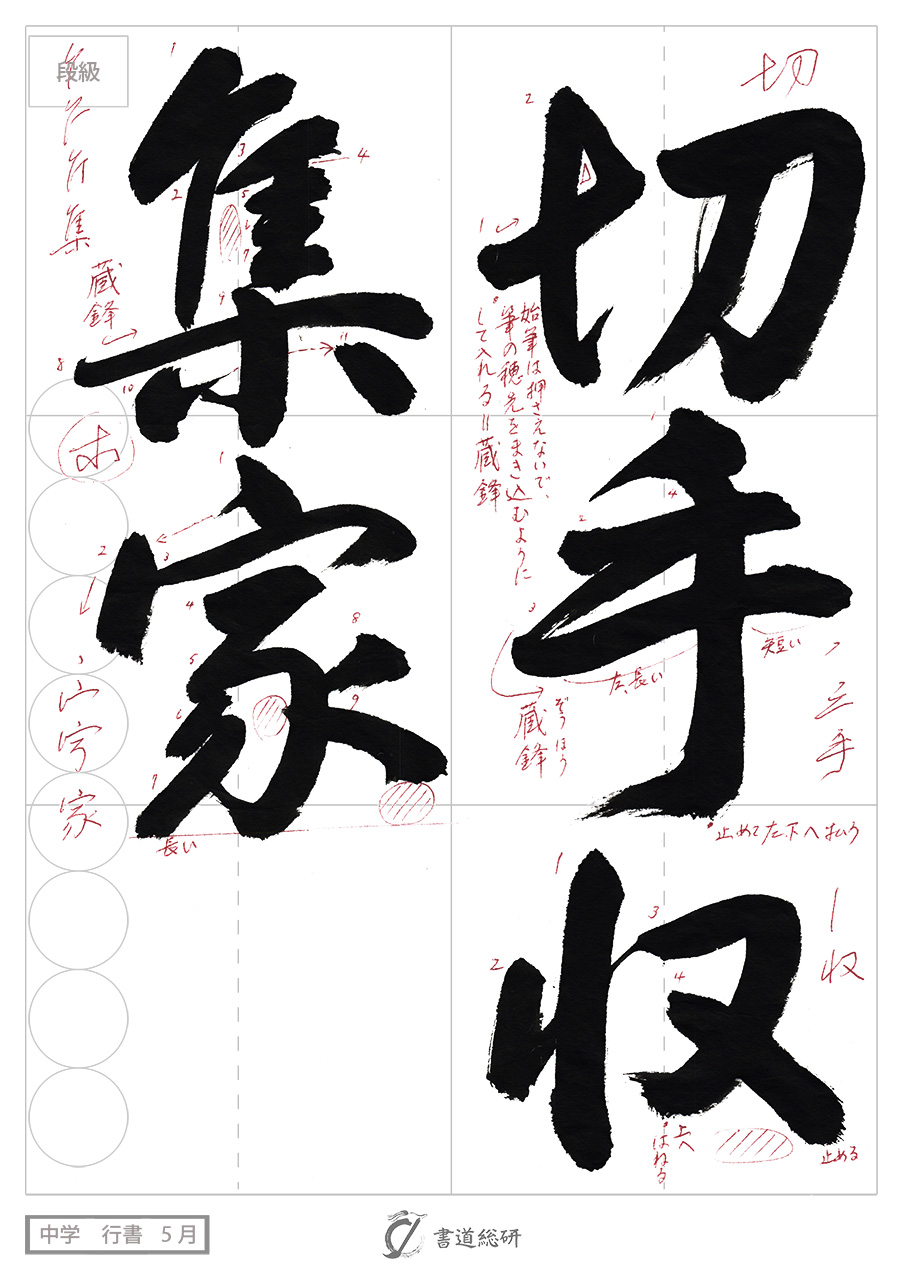 切手収
集家
切
1
2
始筆は押さえないで、
筆の穂先をまき込むように
して入れる＝蔵鋒
1
2
3
4
左、長い
短い
ぞうほう
蔵鋒
三
手
止めて左下へ払う
1
2
3
4
収
上へ
はねる
止める
段級
集
蔵鋒
1
2
3
4
5
6
7
8
9
10
11
1
2
3
4
5
6
7
8
9
長い
宀
家
中学 行書 5月
書道総研